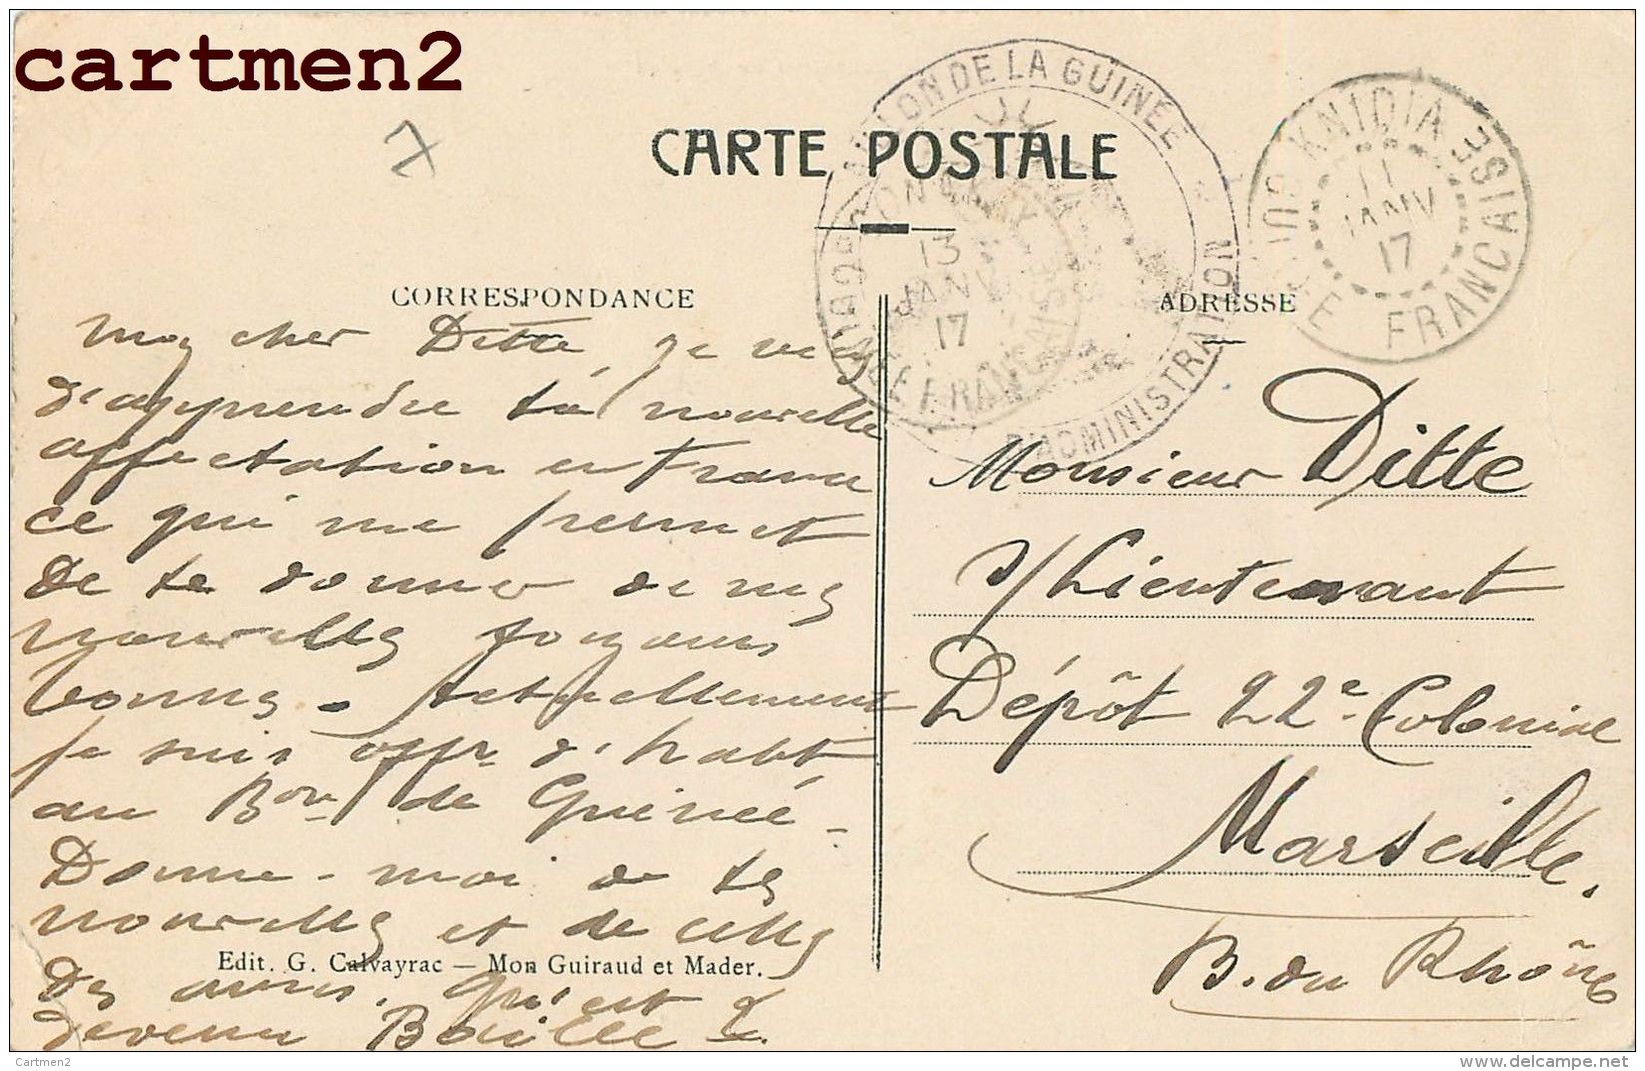 cartmen2
7
CARTE POSTALE
BATAILLON DE LA GUINÉE
D'ADMINISTRATION
13
JANV
17
GUINÉE FRANÇAISE
KINDIA
11
JANV
17
GUINÉE FRANÇAISE
CORRESPONDANCE
Mon cher Ditte, je viens
d'apprendre ta nouvelle
affectation en France
ce qui me permet
de te donner de mes
nouvelles toujours
bonnes - Actuellement
je suis offr d'habt
au Bon de Guinée -
Donne-moi de tes
nouvelles et de celles
des amis. Qu'est
devenu
ADRESSE
Monsieur Ditte
s/Lieutenant
Dépôt 22e Colonial
Marseille.
B. du Rhône
Edit. G. Calvayrac — Mon Guiraud et Mader.
Cartmen2
www.delcampe.net